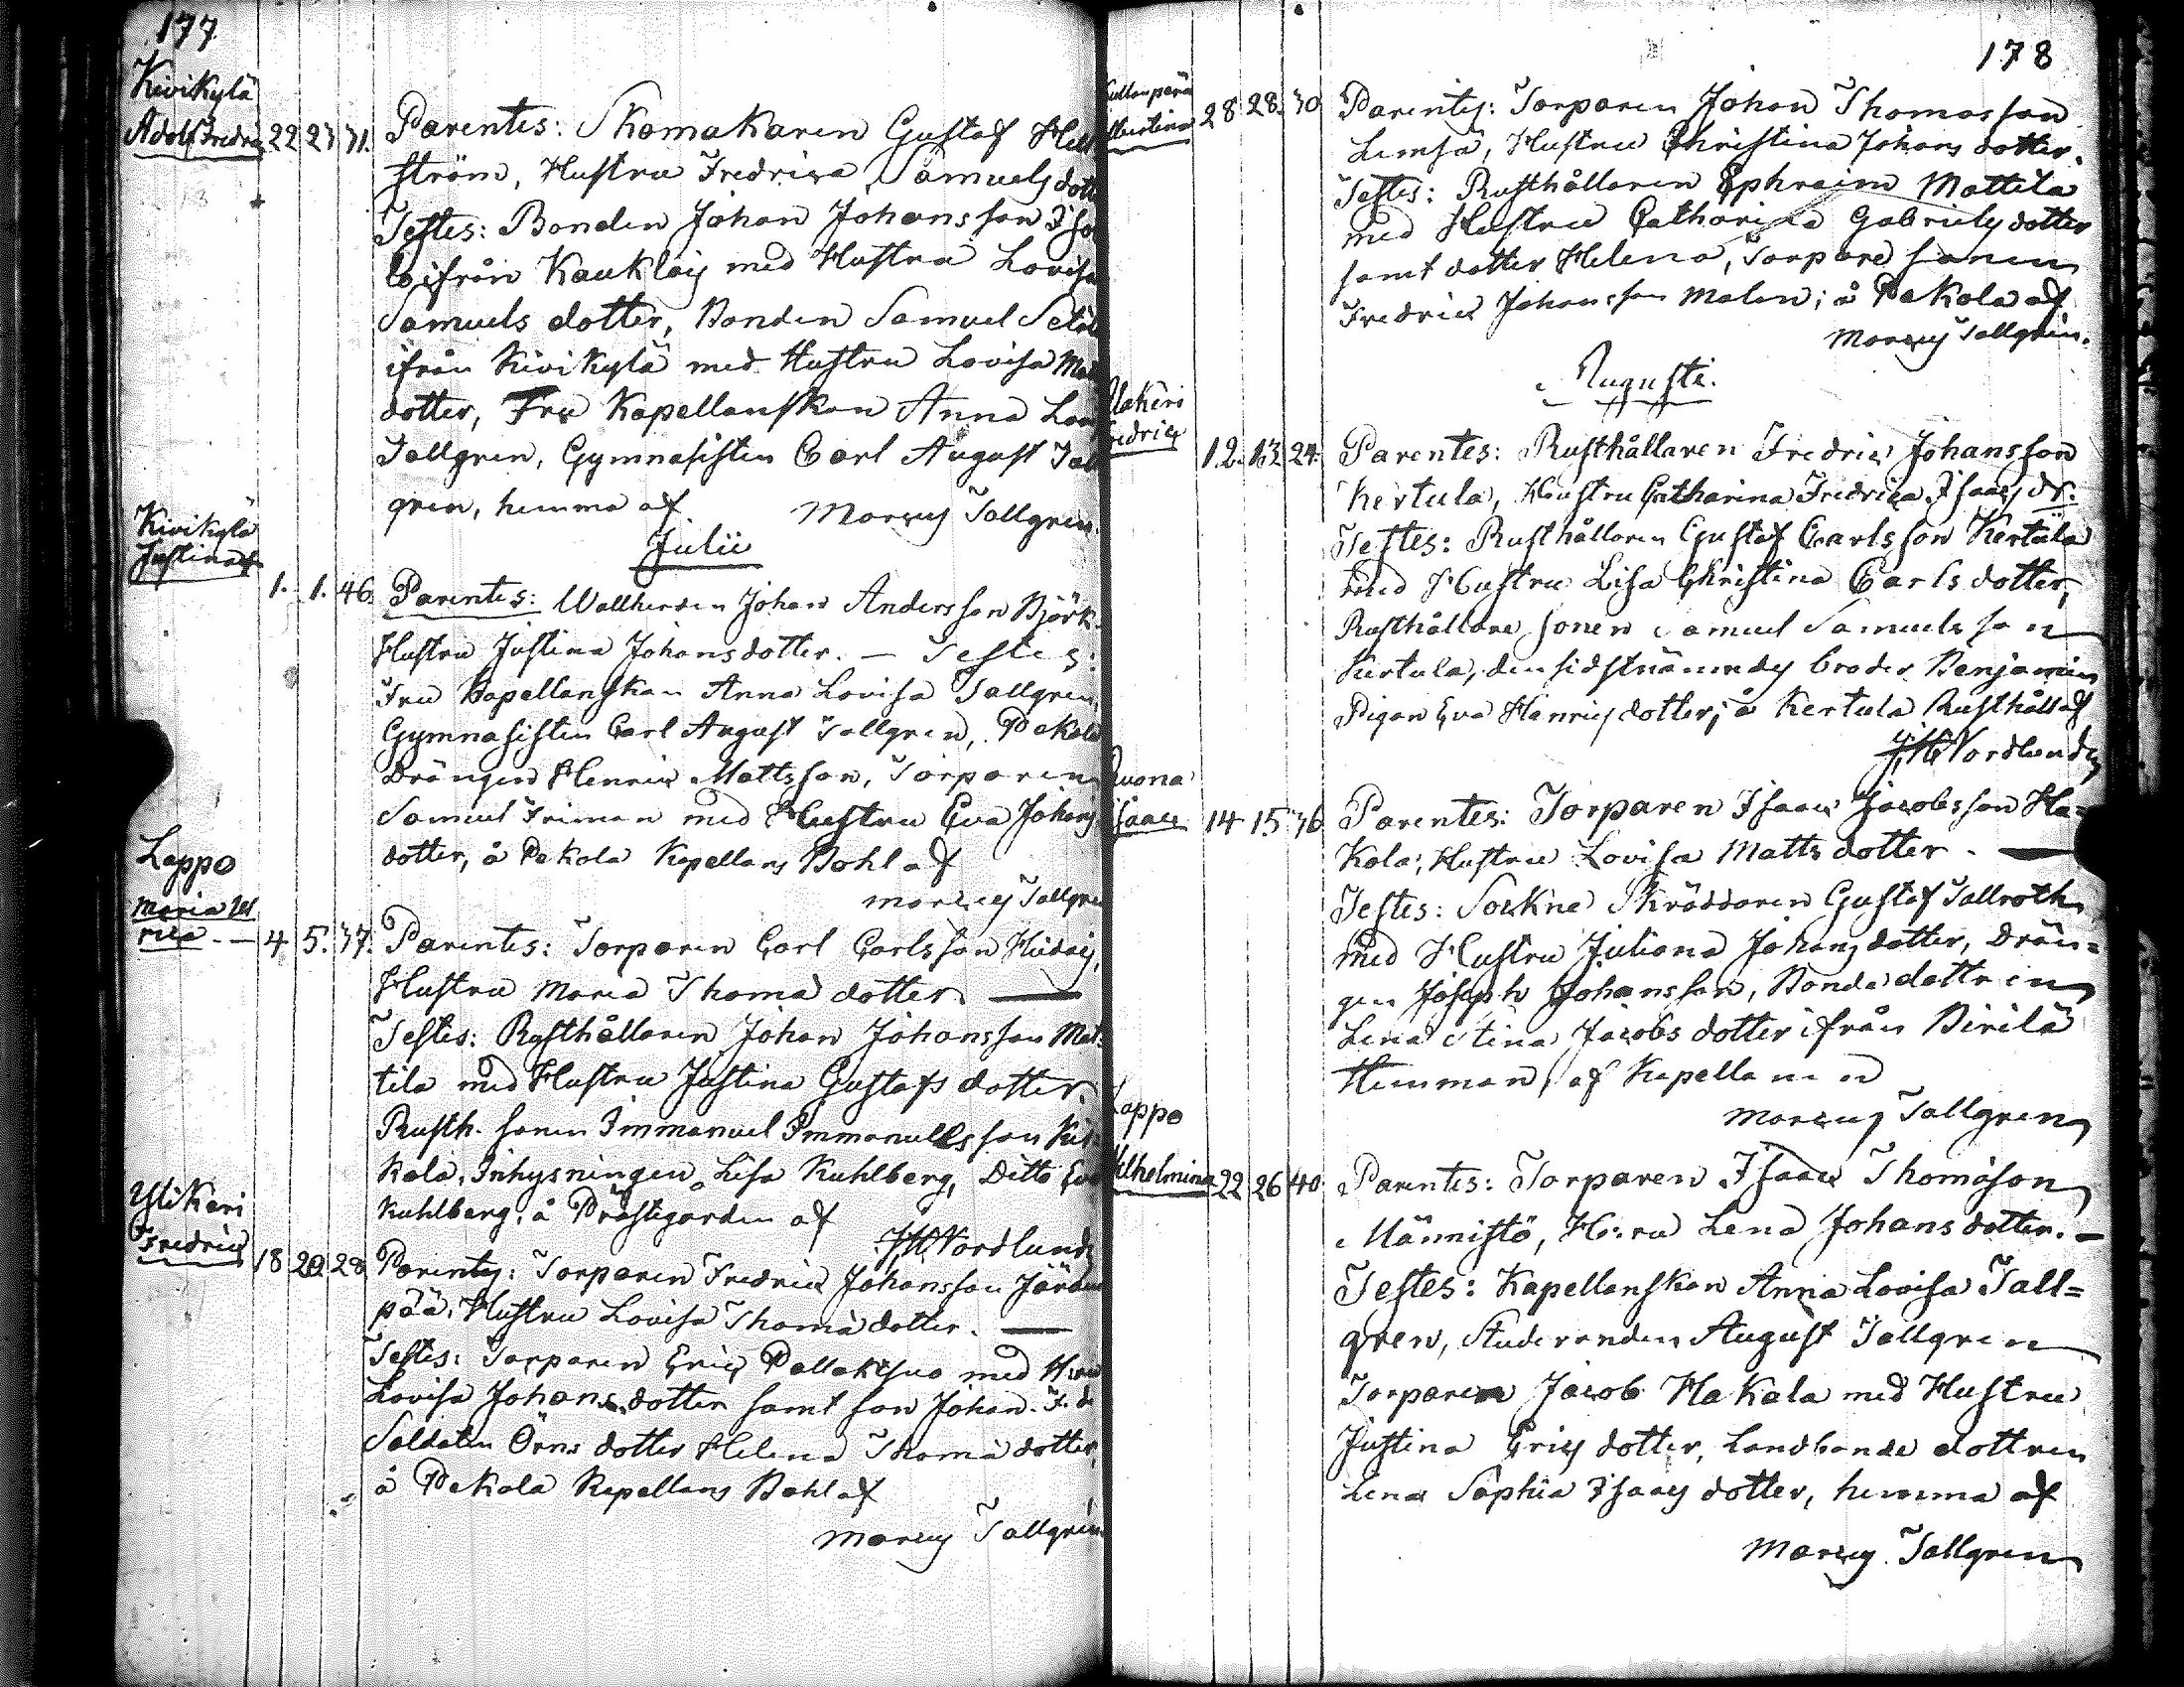 177
Kivikylä
Adolf Fredric 22 23 31. Parentes: Skomakaren Gustaf
ström, Hustru Fredrica Samuels dott
Testes: Bonden Johan Johansson
ifrån Kauklais med Hustru Lovisa
Samuels dotter, Bonden Samuel
ifrån Kivikylä med Hustru Lovisa
dotter, Fru Kapellanskan Anna Lov
Tallgren, Gymnasisten Carl August Tall
gren, hemma af Marcus Tallgren.
Julii
Kivikylä
Justina
1. 1. 46. Parentes: Johan Andersson Björk.
Hustru Justina Johansdotter. — Testes:
Fru Kapellanskan Anna Lovisa Tallgren,
Gymnasisten Carl August Tallgren, Pakola
Drängen Henric Mattsson, Torparen
Samuel Friman med Hustru Eva Johans
dotter, å Pakola Kapellans Bohl af
Marcus Tallgren
Lappo
Maria Ul
rica. — 4 5. 37. Parentes: Torparen Carl Carlsson
Hustru Maria Thomæ dotter. —
Testes: Rusthållaren Johan Johansson Mat=
tila med Hustru Justina Gustafs dotter.
Rusth. sonen Immanuel Immanuelsson
kola, Inhysningen Lisa Kuhlberg, Ditto Eva
Kuhlberg, å Prästgården af
JH Nordlund
Ylikeri
Fredric 18 20 28 Parentes: Torparen Fredric Johansson
pää, Hustru Lovisa Thomæ dotter. —
Testes: Torparen Eric med
Lovisa Johans dotter samt son Johan.
Soldaten Örns dotter Helena Thomæ dotter,
å Pakola Kapellans Bohl af
Marcus Tallgren
178
28 28. 30 Parentes: Torparen Johan Thomasson
Hustru Christina Johans dotter.
Testes: Rusthållaren Ephraim Mattila
med Hustru Catharina Gabriels dotter
samt dotter Helena, Torpare sonen
Fredric Johansson Malen; å Pakola af
Marcus Tallgren.
Augusti.
Fredric
12. 13 24. Parentes: Rusthållaren Fredric Johansson
Kertula, Hustru Catharina Fredrica Isaacs dr.
Testes: Rusthållaren Gustaf Carlsson Kertula
med Hustru Lisa Christina Carls dotter,
Rusthållare sonen Samuel Samuelsson
Kertula, den sidstnämndes broder Benjamin
Pigan Eva Henrics dotter; å Kertula Rusthåll af
JH Nordlund
Isaac 14 15 36 Parentes: Torparen Isaac Jacobsson Ha=
kola, Hustru Lovisa Matts dotter. —
Testes: Sockne Skräddaren Gustaf Tallroth
med Hustru Juliana Johans dotter, Drän=
gen Joseph Johansson, Bonde dottren
Lena Stina Jacobs dotter ifrån Pirilä
Hemman, af Kapellanen
Marcus Tallgren
Lappo
Wilhelmina 22 26 40 Parentes: Torparen Isaac Thomasson
Männistö, H:ru Lena Johans dotter. —
Testes: Kapellanskan Anna Lovisa Tall=
gren, Studeranden August Tallgren
Torparen Jacob Hakala med Hustru
Justina Erics dotter, Landbonde dottren
Lena Sophia Isaacs dotter, hemma af
Marcus Tallgren